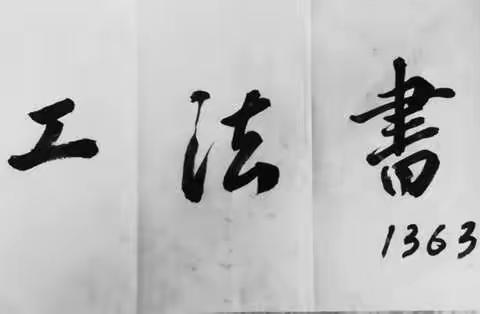 書法工
1363